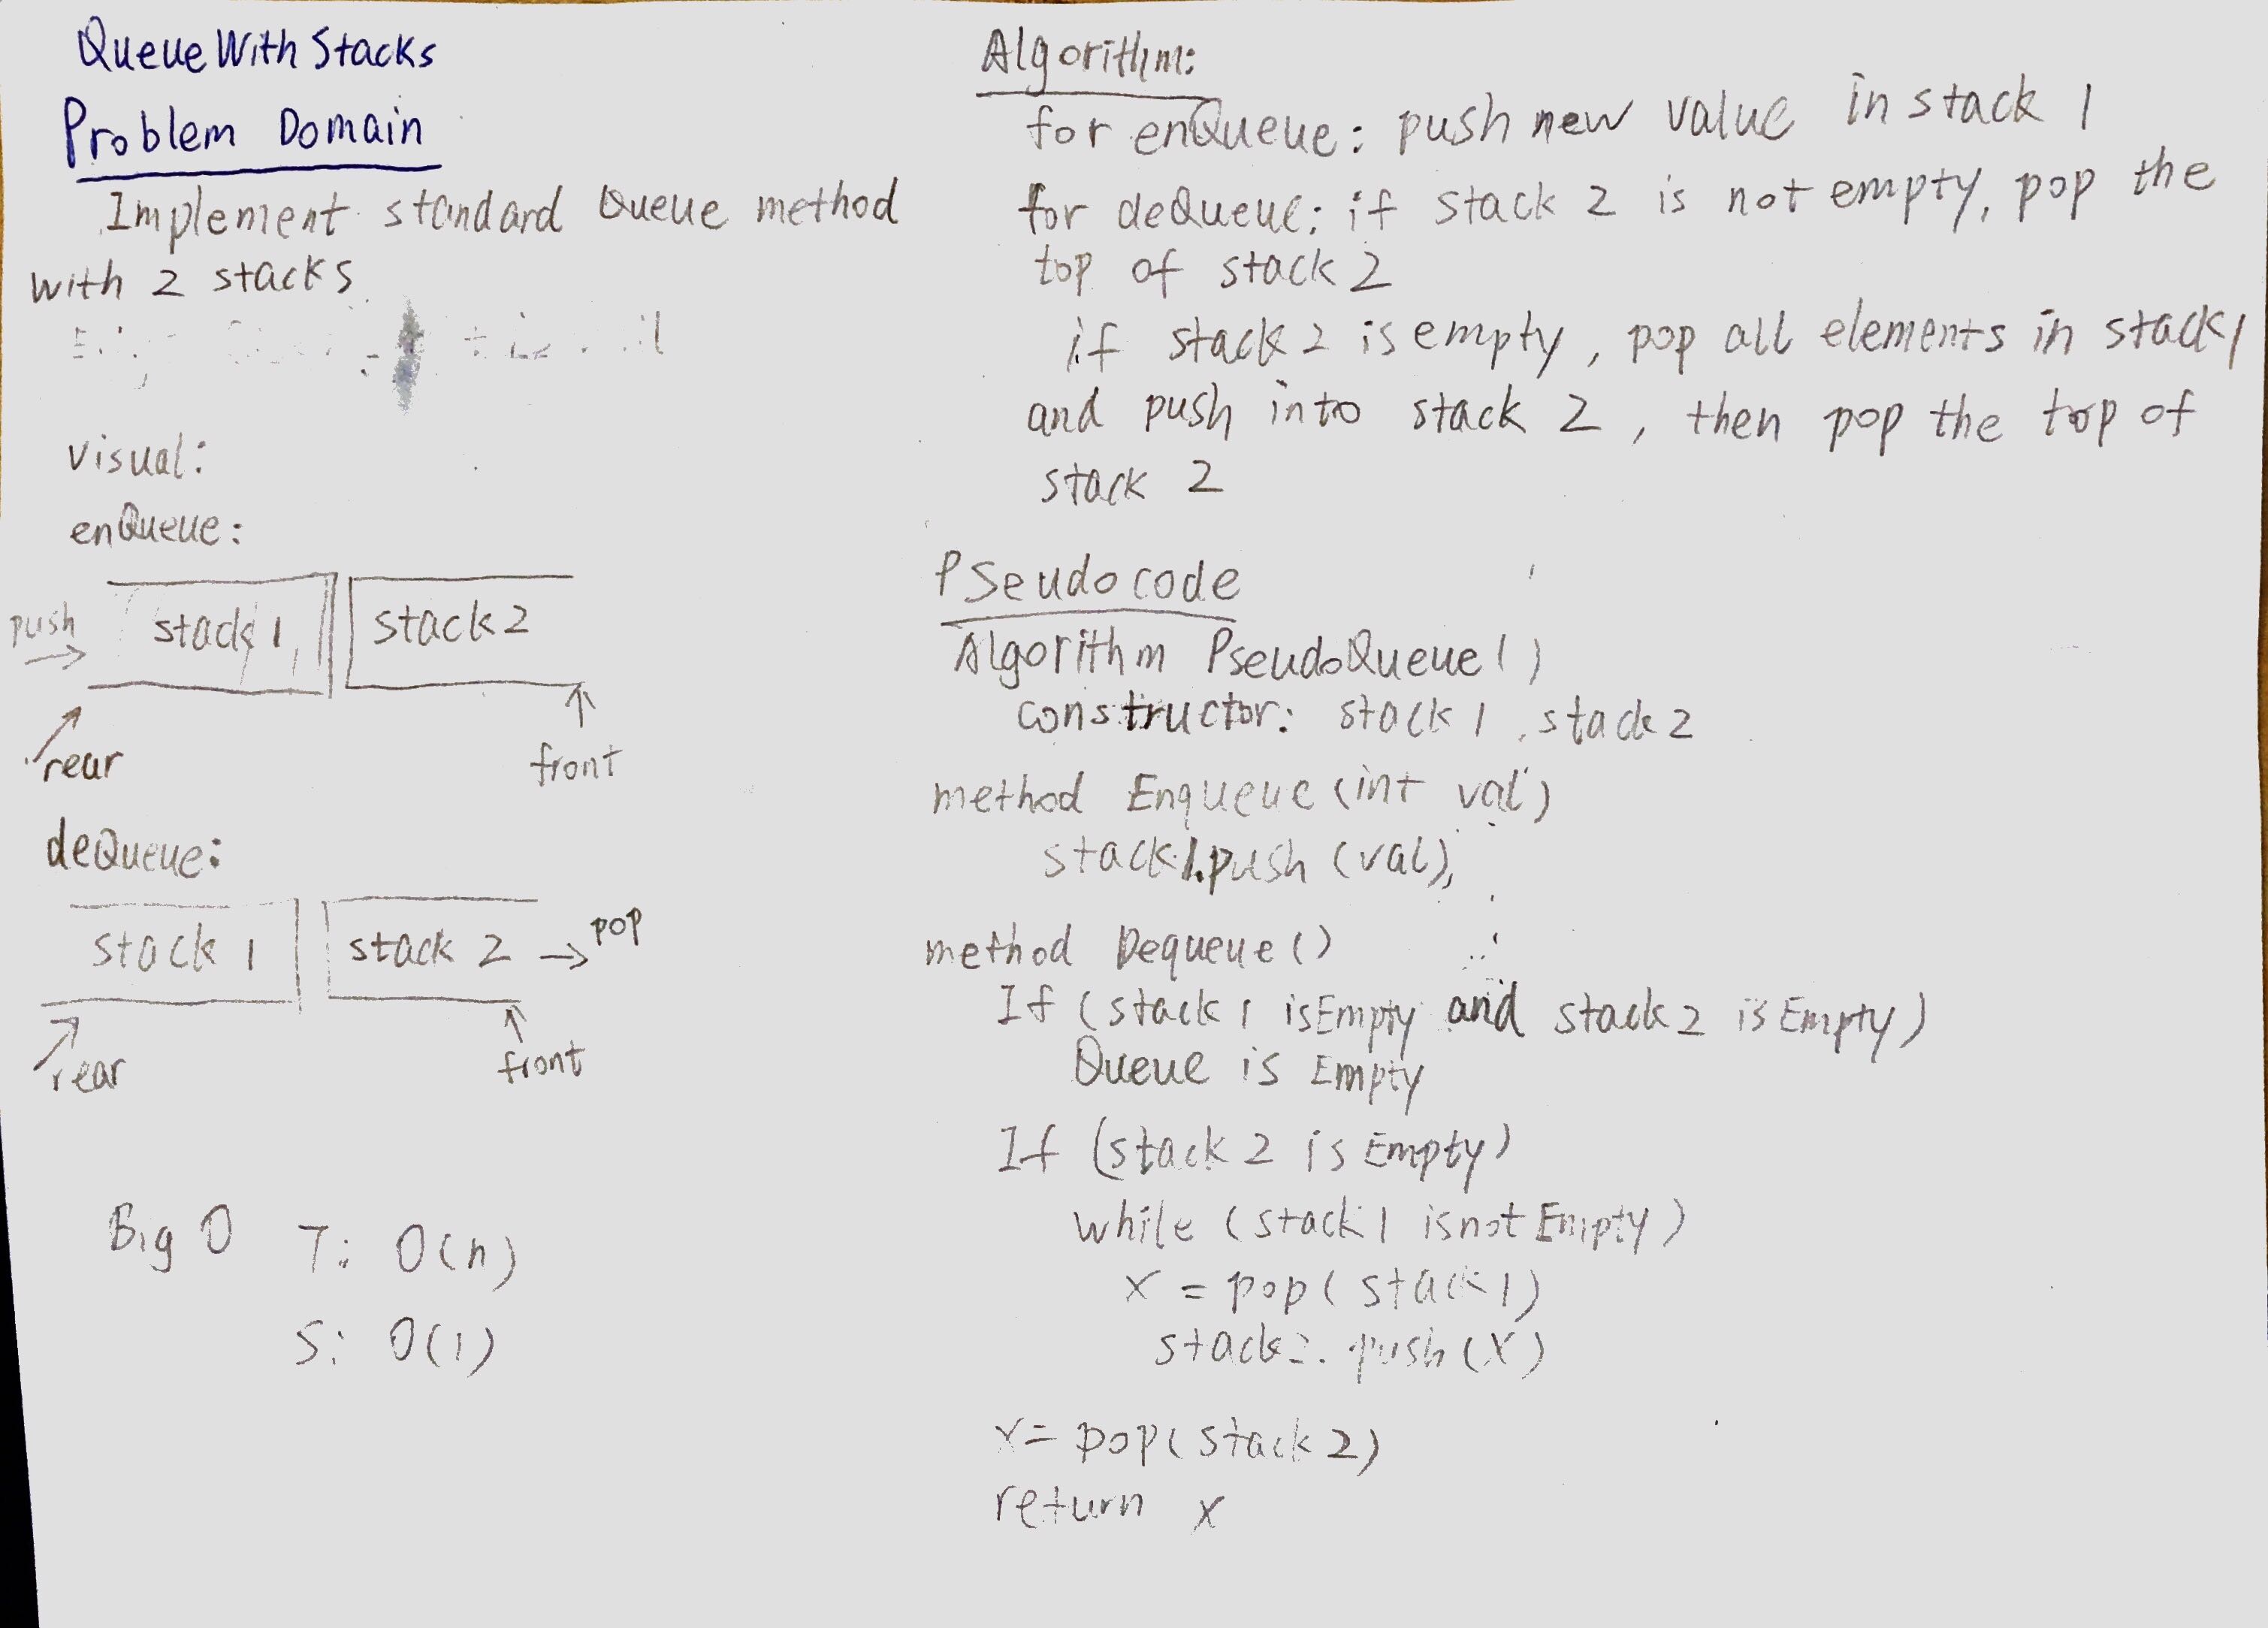 QueueWithStacks
Problem Domain
Implement standard Queue method
with 2 stacks
visual:
enQueue:
push
stack 1
stack 2
rear
front
deQueue:
stack 1
stack 2
pop
rear
front
Big O T: O(n)
S: O(1)
Algorithm:
for enQueue: push new value in stack 1
for deQueue: if stack 2 is not empty, pop the
top of stack 2
if stack 2 is empty, pop all elements in stack 1
and push into stack 2, then pop the top of
stack 2
PSeudocode
Algorithm PseudoQueue()
constructor: stack 1, stack 2
method Enqueue (int val)
stack1.push (val);
method Dequeue()
If (stack 1 isEmpty and stack 2 is Empty)
Queue is Empty
If (stack 2 is Empty)
while (stack 1 is not Empty)
x = pop( stack 1)
stack2. push (X)
x = pop( stack 2)
return x